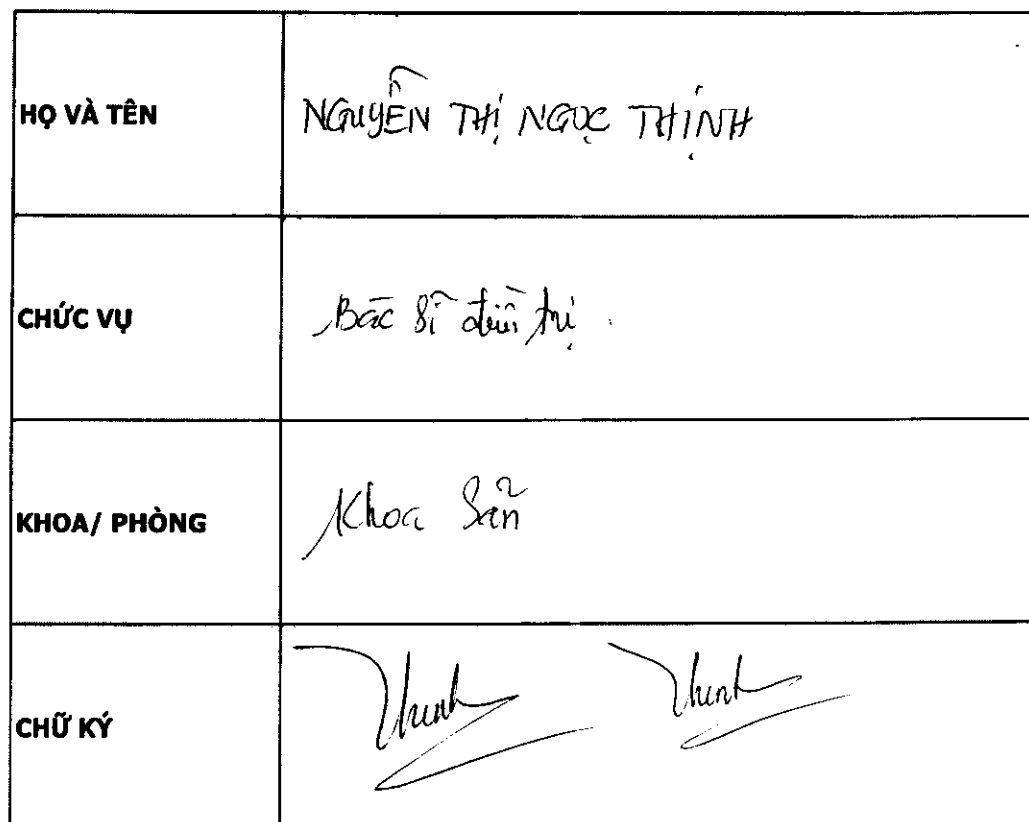 HỌ VÀ TÊN NGUYỄN THỊ NGỌC THỊNH
CHỨC VỤ Bác sĩ điều trị
KHOA/ PHÒNG Khoa Sản
CHỮ KÝ Thinh Thinh